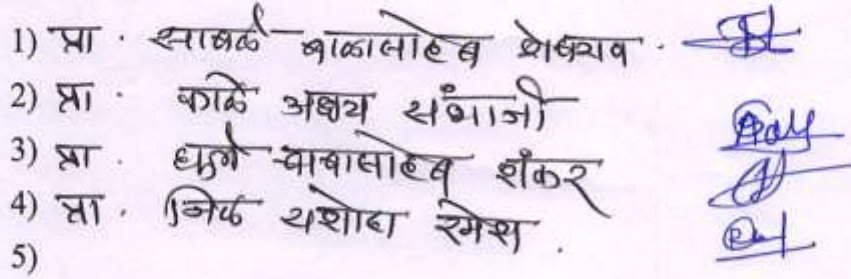 1) प्रा. साबळे बाळासाहेब शेषराव.
2) प्रा. काळे अक्षय संभाजी
3) प्रा. घुले बाबासाहेब शंकर
4) प्रा. यशोदा रमेश.
5)